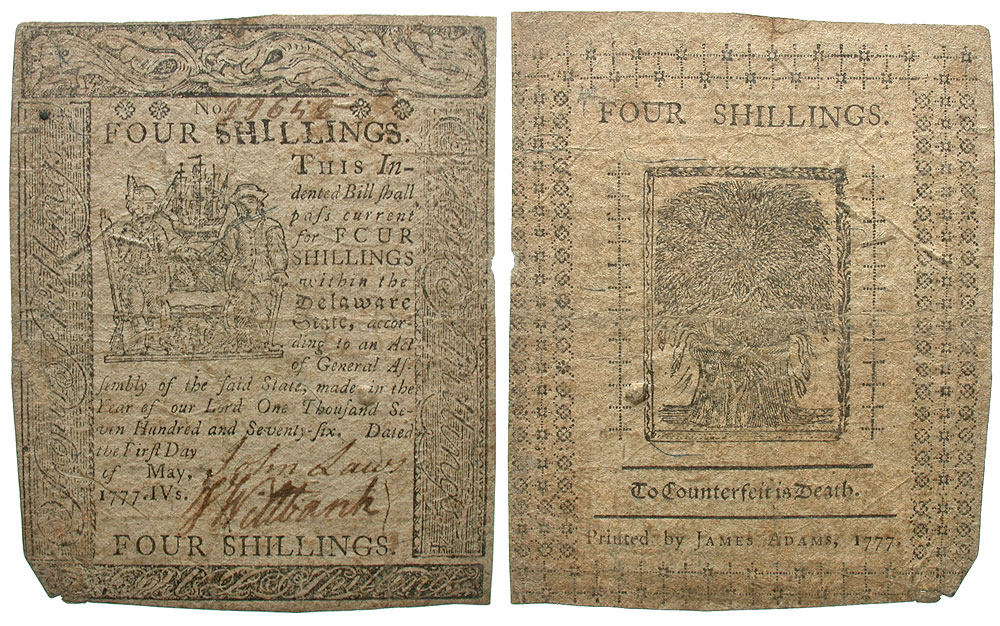 No. 
FOUR SHILLINGS.
THIS In-
dented Bill ſhall
paſs current
for FCUR
SHILLINGS
within the
Delaware
State, accor-
ding to an Act
of General Aſ-
ſembly of the ſaid State, made in the
Year of our Lord One Thouſand Se-
ven Hundred and Seventy-ſix. Dated
the Firſt Day
of May,
1777. IVs.
John Laws
J Wiltbank
FOUR SHILLINGS.
FOUR SHILLINGS.
To Counterfeit is Death.
Printed by JAMES ADAMS, 1777.